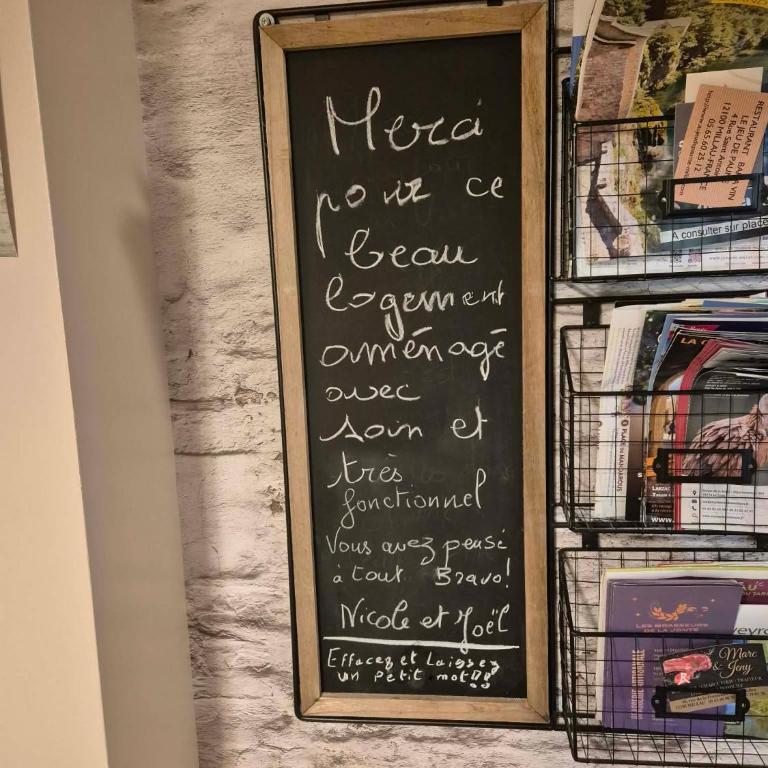 Merci
pour ce
beau
logement
aménagé
avec
soin et
très
fonctionnel
Vous avez pensé
à tout Bravo!
Nicole et Joël
Effacez et Laissez
un petit mot!!!
RESTAURANT BAR À VIN
LE JEU DE PAUME
4 Rue Saint Antoine
12100 MILLAU-FRANCE
05.65.60.25.12
A consulter sur place
LES BRASSEURS
DE LA JONTE
Marc
& Jeny